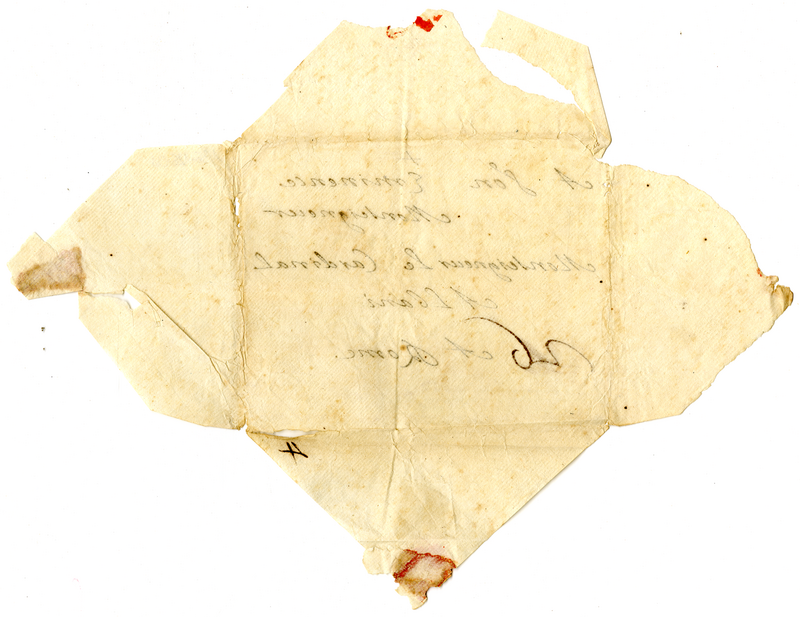 A Son Eminence.
Monseigneur
Monseigneur Le Cardinal
Albani
A Rome.
4